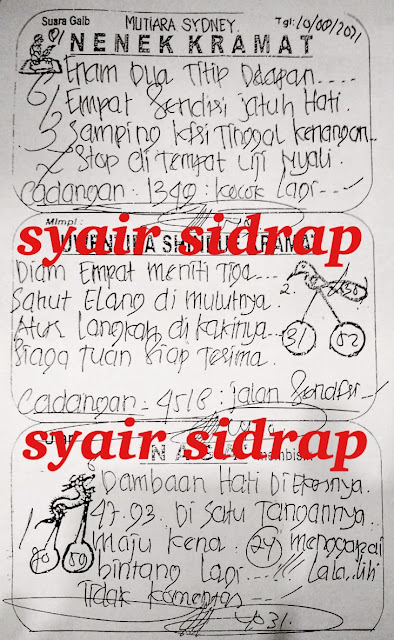 Suara Gaib MUTIARA SYDNEY. Tgl: 10/00/2021
NENEK KRAMAT
Enam Dua Titip Delapan....
6 Empat Sendiri jatuh Hati.
5 Samping Kiri Tinggal Kenangan..
7 Stop di Tempat Uji Nyali.
Cadangan : 1349 : kocok Lagi
Mimpi :
syair sidrap
KRAMAT
Diam Empat meniti Tiga...
Sahut Elang di mulutnya.
2.
Atur Langkah di kakinya...
31 52
Siaga Tuan Siap Terima.
Cadangan - 4518 : jalan
syair sidrap
Dambaan Hati Di Ekornya.
47.93. Di Satu Tangannya.
1 Maju kena. 24 menggapai
50
bintang Lagi ...!!! Lala..lili
Tidak Komentar
4031.